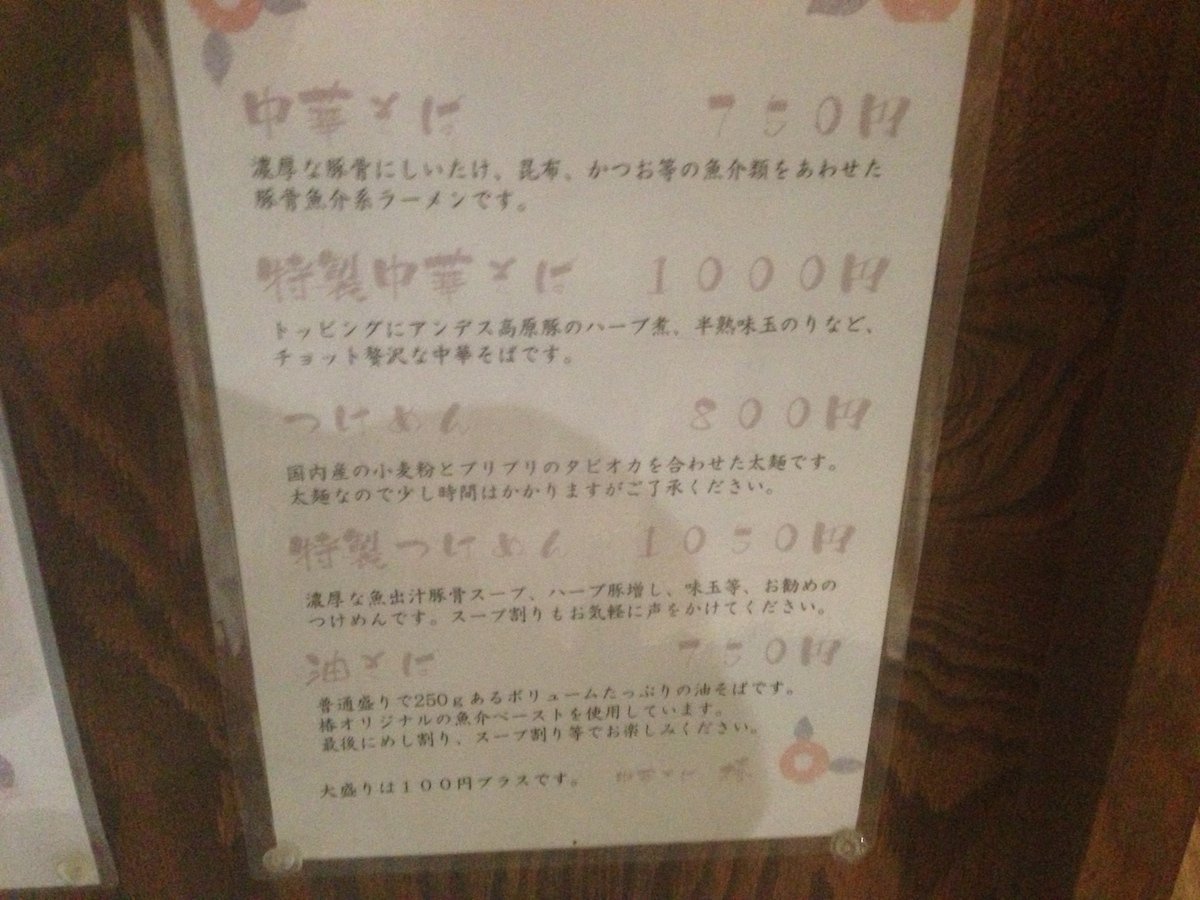 中華そば 750円
濃厚な豚骨にしいたけ、昆布、かつお等の魚介類をあわせた
豚骨魚介系ラーメンです。
特製中華そば 1000円
トッピングにアンデス高原豚のハーブ煮、半熟味玉のりなど、
チョット贅沢な中華そばです。
つけめん 800円
国内産の小麦粉とプリプリのタピオカを合わせた太麺です。
太麺なので少し時間はかかりますがご了承ください。
特製つけめん 1050円
濃厚な魚出汁豚骨スープ、ハーブ豚増し、味玉等、お勧めの
つけめんです。スープ割りもお気軽に声をかけてください。
油そば 750円
普通盛りで250gあるボリュームたっぷりの油そばです。
椿オリジナルの魚介ペーストを使用しています。
最後にめし割り、スープ割り等でお楽しみください。
大盛りは100円プラスです。 中華そば 椿